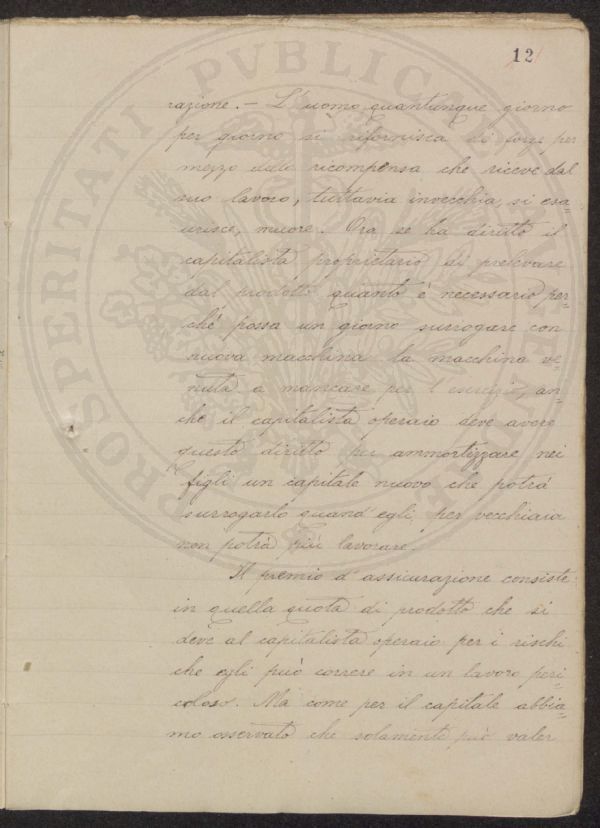 12
razione. - L'uomo quantunque giorno
per giorno si rifornisca di forze per
mezzo della ricompensa che riceve dal
suo lavoro, tuttavia invecchia, si esa=
urisce, muore. Ora se ha diritto il
capitalista proprietario di prelevare
dal prodotto quanto è necessario per=
chè possa un giorno surrogare con
nuova macchina la macchina ve=
nuta a mancare per l'esercizio, an=
che il capitalista operaio deve avere
questo diritto per ammortizzare nei
figli un capitale nuovo che potrà
surrogarlo quand'egli, per vecchiaia
non potrà più lavorare.
Il premio d'assicurazione consiste
in quella quota di prodotto che si
deve al capitalista operaio per i rischi
che egli può correre in un lavoro peri
coloso. Ma come per il capitale abbia=
mo osservato che solamente può valer
PROSPERITATI PVBLICAE